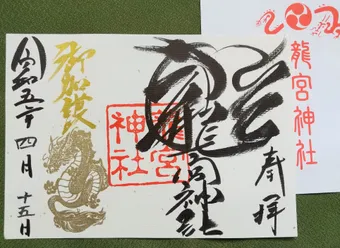 奉拝
龍宮神社
龍宮
神社
御加護
令和五年 四月 十五日
龍宮神社